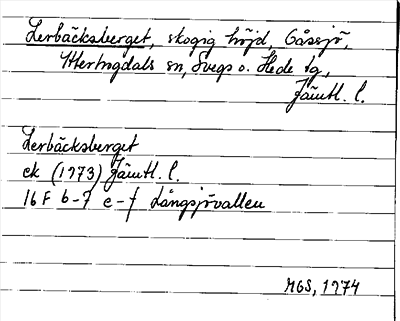 Lerbäcksberget, skogig höjd, Gåssjö,
Ytterhogdals sn, Svegs o. Hede tg,
Jämtl. l.
Lerbäcksberget
ek (1973) Jämtl. l.
16 F 6-7 e-f Långsjövallen
MGS, 1974